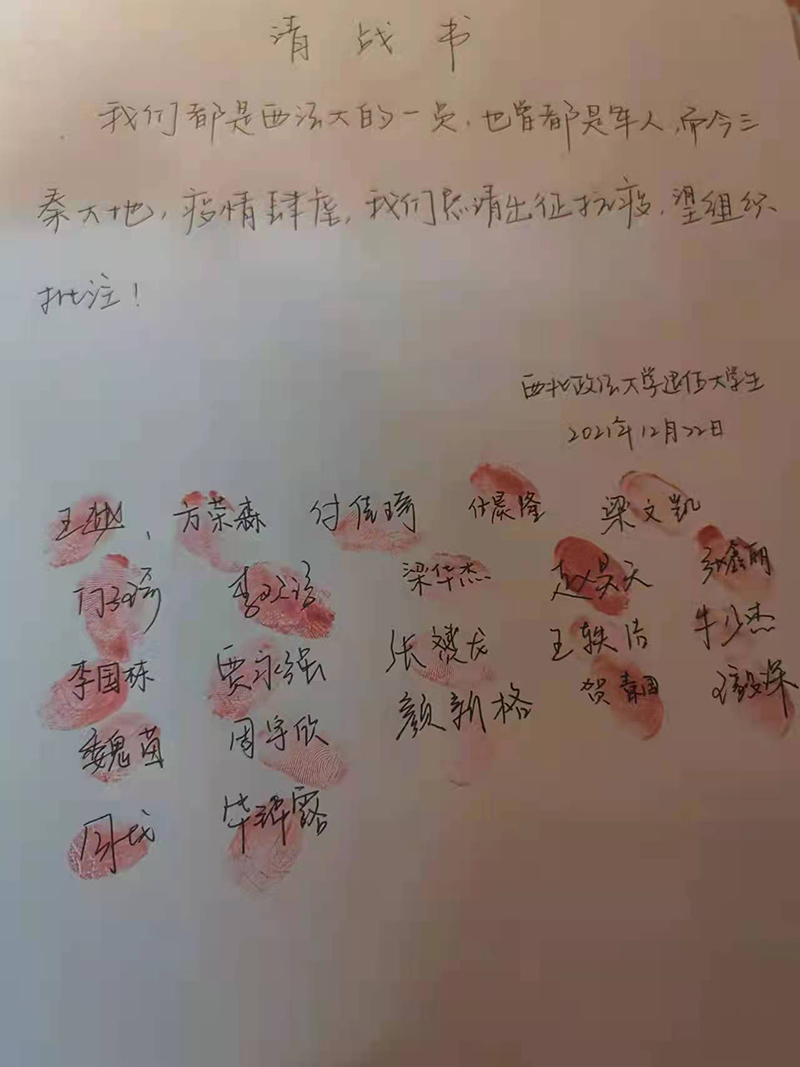 请战书
我们都是西法大的一员，也曾都是军人，而今三
秦大地，疫情肆虐，我们恳请出征抗疫，望组织
批注！
西北政法大学退伍大学生
2021年12月22日
王越、方荣森 付佳琦 付晨隆 梁文凯
闫琦 梁华杰 赵昊天 张鑫丽
李国栋 贾永强 张赟龙 王轶浩 牛少杰
魏茵 周宇欣 颜新格 贺春田
周戈 毕玮露